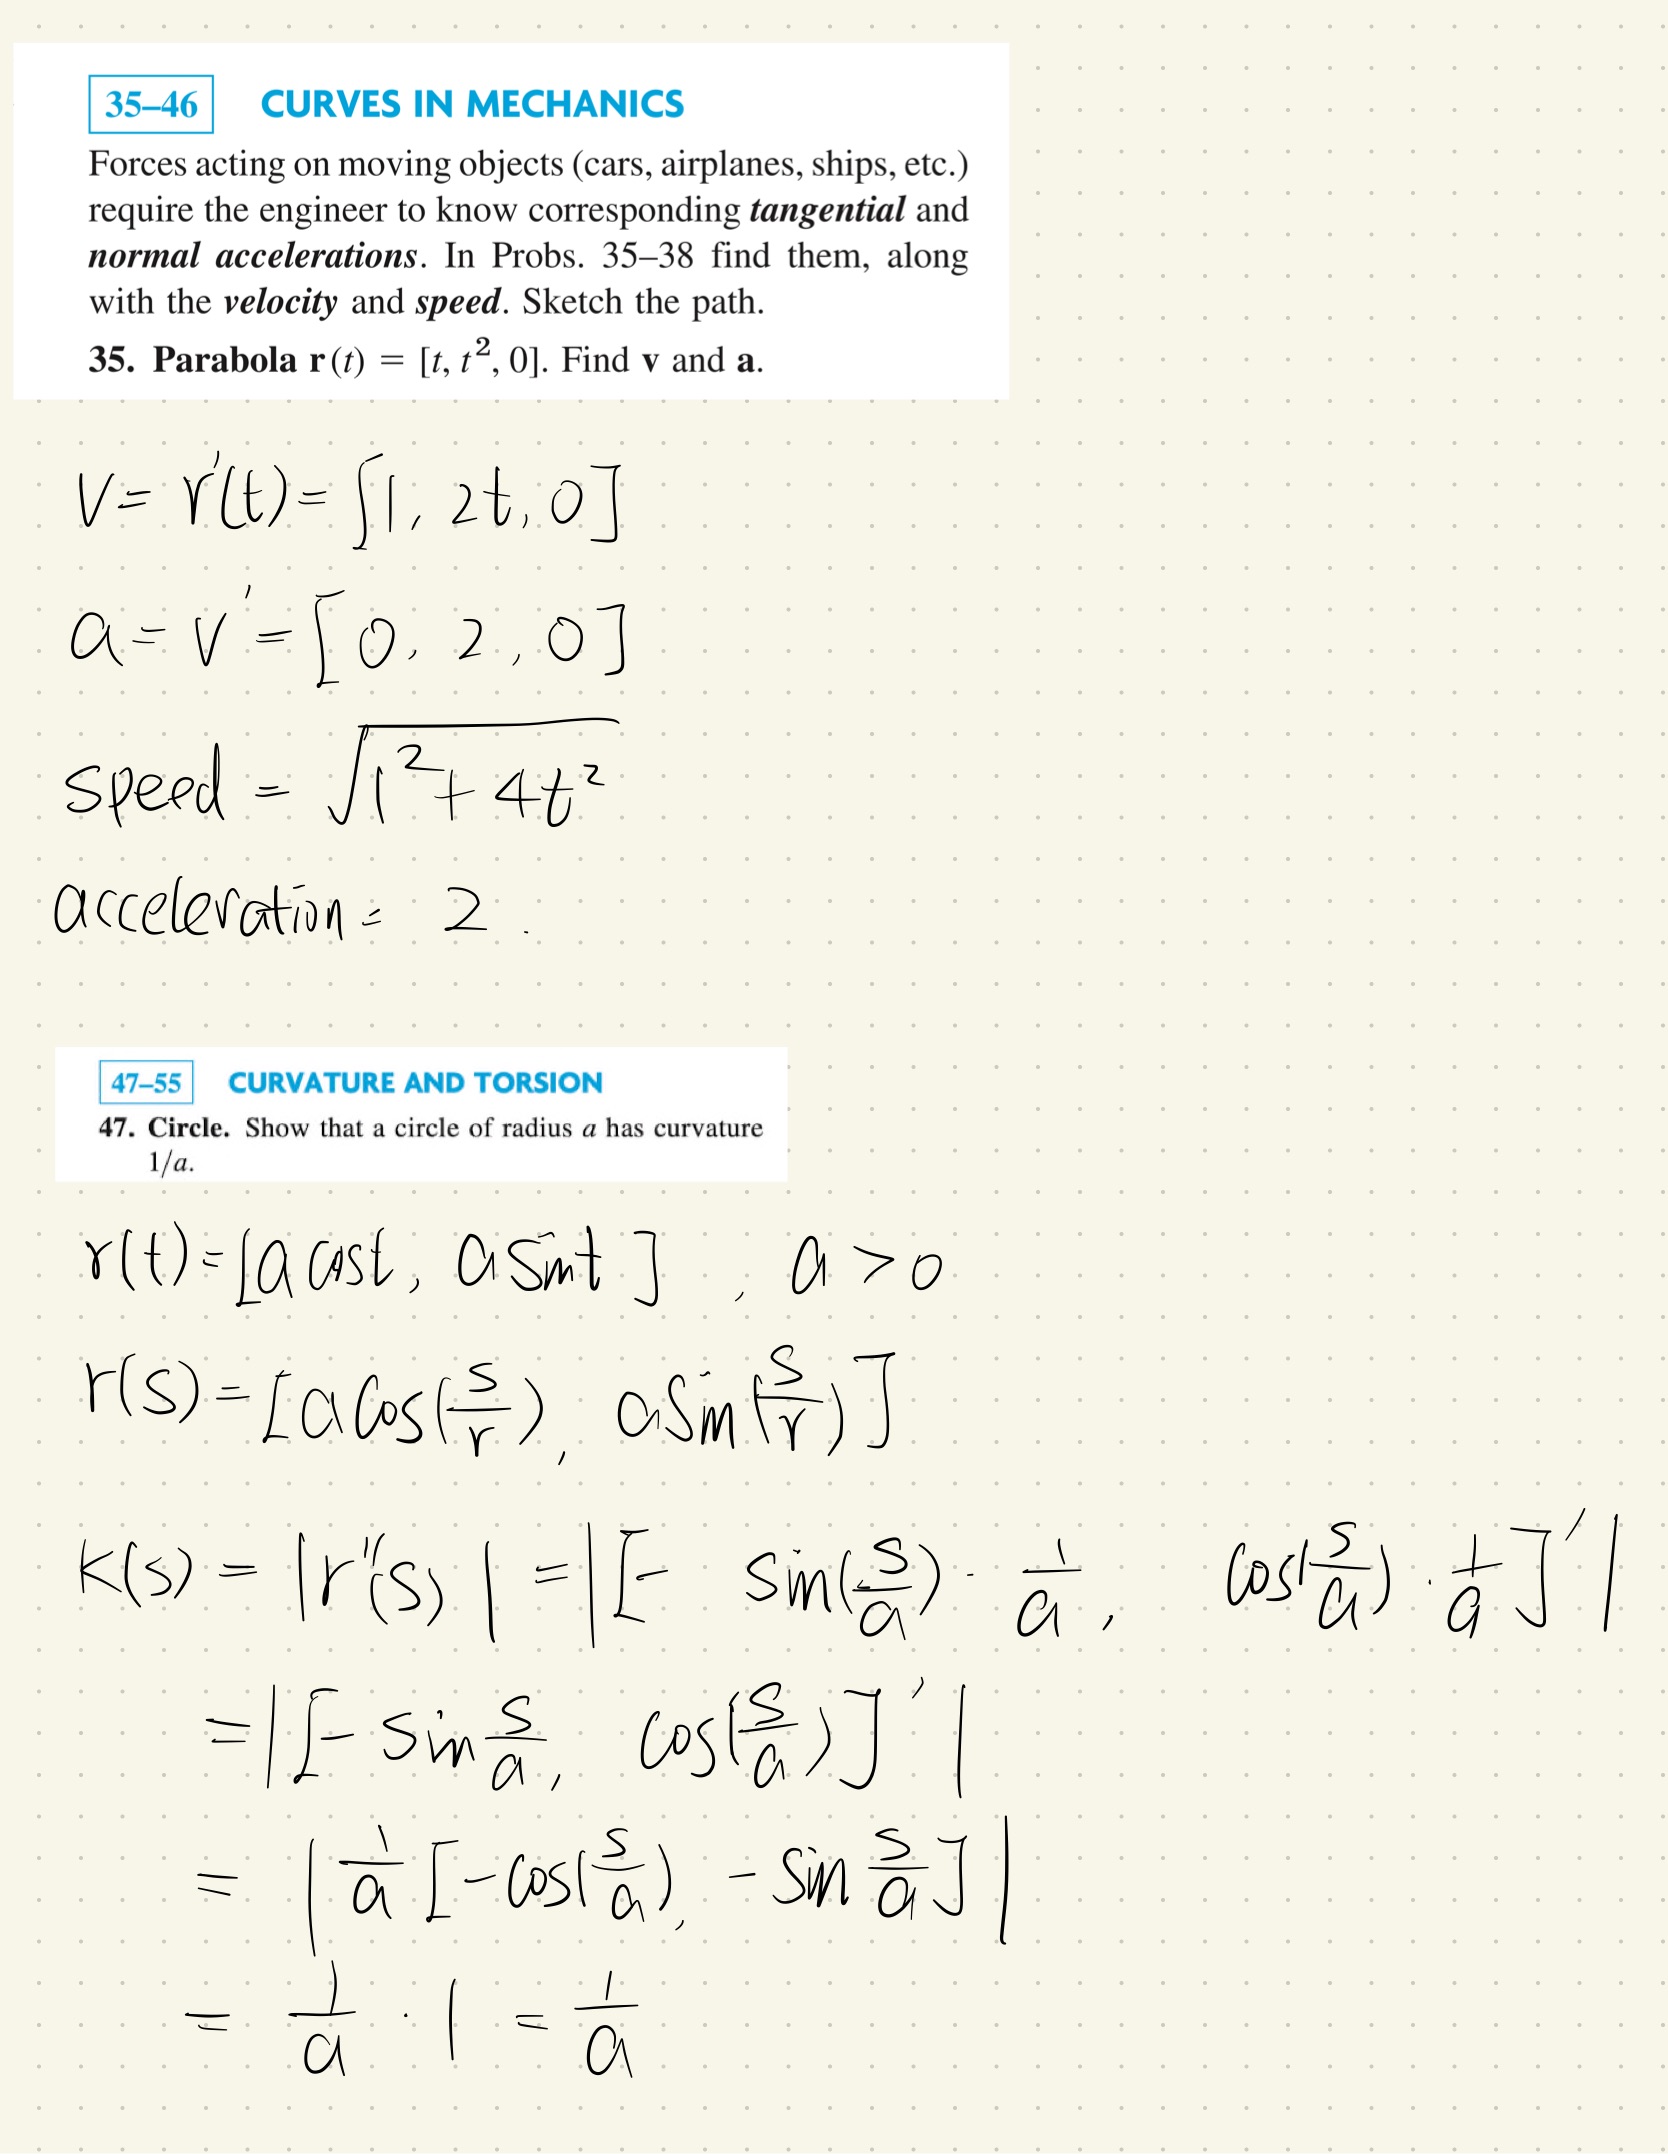 35–46 CURVES IN MECHANICS
Forces acting on moving objects (cars, airplanes, ships, etc.)
require the engineer to know corresponding tangential and
normal accelerations. In Probs. 35–38 find them, along
with the velocity and speed. Sketch the path.
35. Parabola r(t) = [t, t², 0]. Find v and a.
V = r'(t) = [1, 2t, 0]
a = v' = [0, 2, 0]
speed = √(1² + 4t²)
acceleration = 2.
47–55 CURVATURE AND TORSION
47. Circle. Show that a circle of radius a has curvature
1/a.
r(t) = [a cost, a sint], a > 0
r(s) = [a cos(s/r), a sin(s/r)]
K(s) = |r''(s)| = |[- sin(s/a) · 1/a, cos(s/a) · 1/a]'|
= |[- sin s/a, cos(s/a)]'|
= |1/a [-cos(s/a), - sin s/a]|
= 1/a · 1 = 1/a